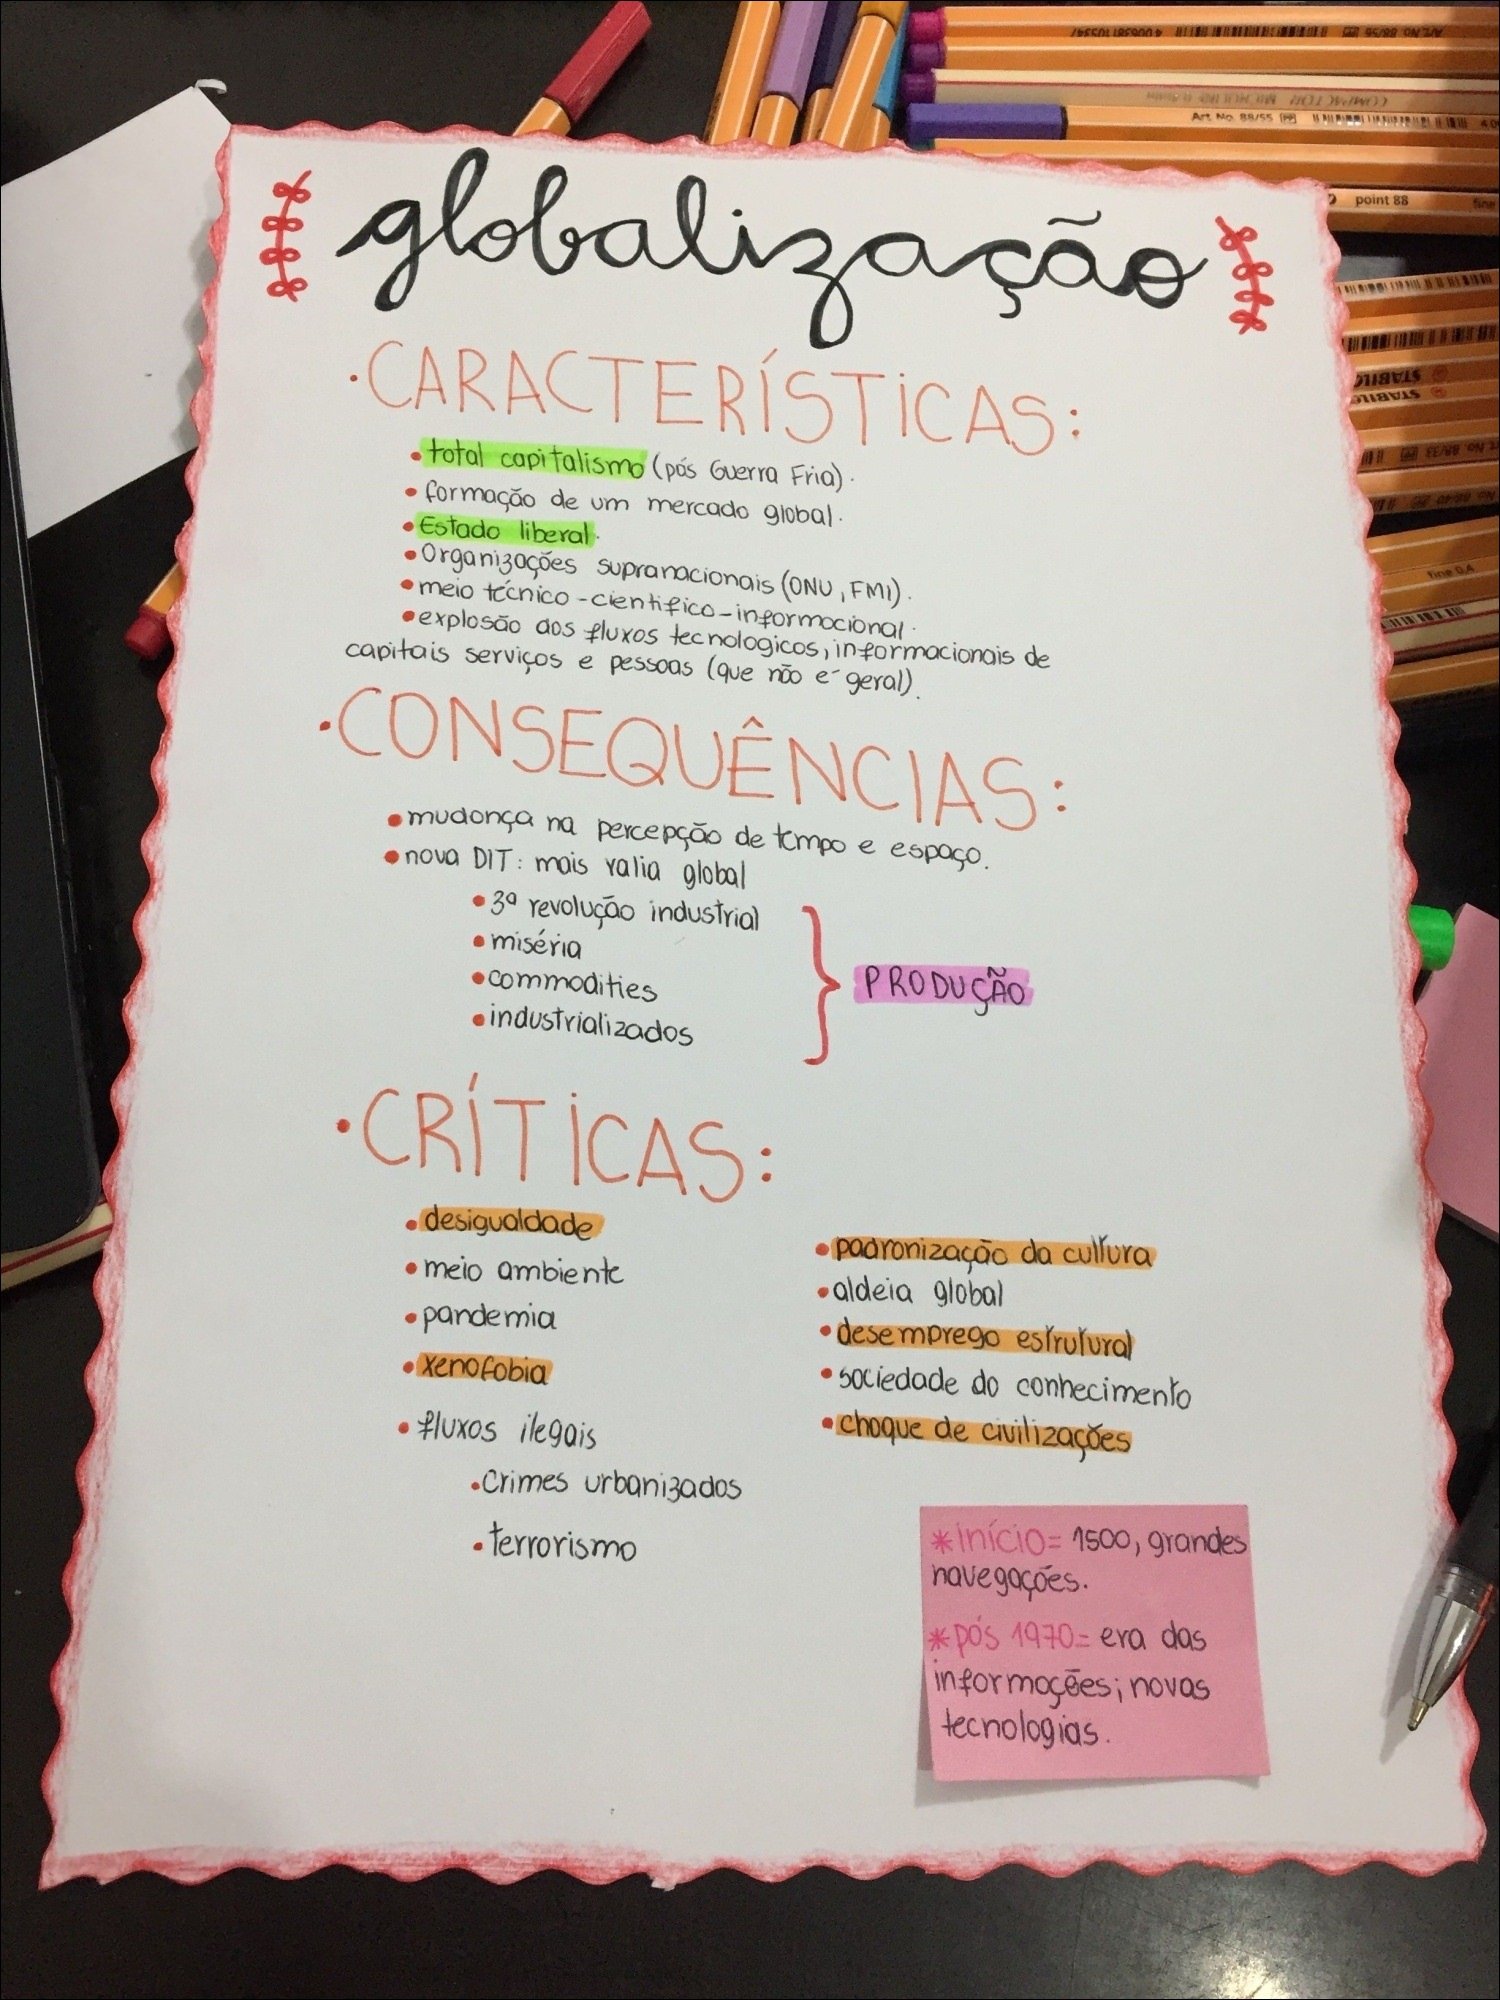 globalização
• CARACTERÍSTICAS:
• total capitalismo (pós Guerra Fria).
• formação de um mercado global.
• Estado liberal.
• Organizações supranacionais (ONU, FMI).
• meio técnico-científico-informacional.
• explosão dos fluxos tecnologicos, informacionais de
capitais serviços e pessoas (que não é geral).
• CONSEQUÊNCIAS:
• mudança na percepção de tempo e espaço.
• nova DIT: mais valia global
• 3ª revolução industrial
• miséria
• commodities
• industrializados
PRODUÇÃO
• CRÍTICAS:
• desigualdade
• meio ambiente
• pandemia
• xenofobia
• fluxos ilegais
• Crimes urbanizados
• terrorismo
• padronização da cultura
• aldeia global
• desemprego estrutural
• sociedade do conhecimento
• choque de civilizações
*início= 1500, grandes
navegações.
*pós 1970= era das
informações; novas
tecnologias.
Art. No. 88/55
point 88
fine
STABILO
STABILO
fine 0,4